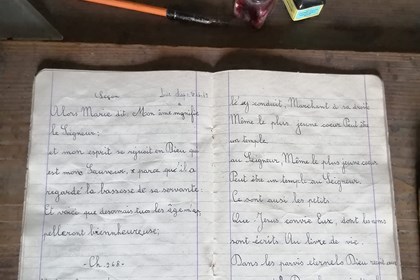 Alors Marie dit: Mon âme magnifie
le Seigneur;
et mon esprit se réjouit en Dieu qui
est mon Sauveur, parce qu'il a
regardé la bassesse de sa servante:
Et voici que désormais tous les âges
pelleront bienheureuse;
-Ch. 268-
conduit, Marchant à sa droite
Même le plus jeune coeur Peut être
un temple
au Seigneur Même le plus jeune coeur
Peut être un temple au Seigneur.
Ce sont aussi les petits
Que Jésus convie Eux, dont les noms
sont écrits Au livre de vie
Dans les parvis éternels Dieu